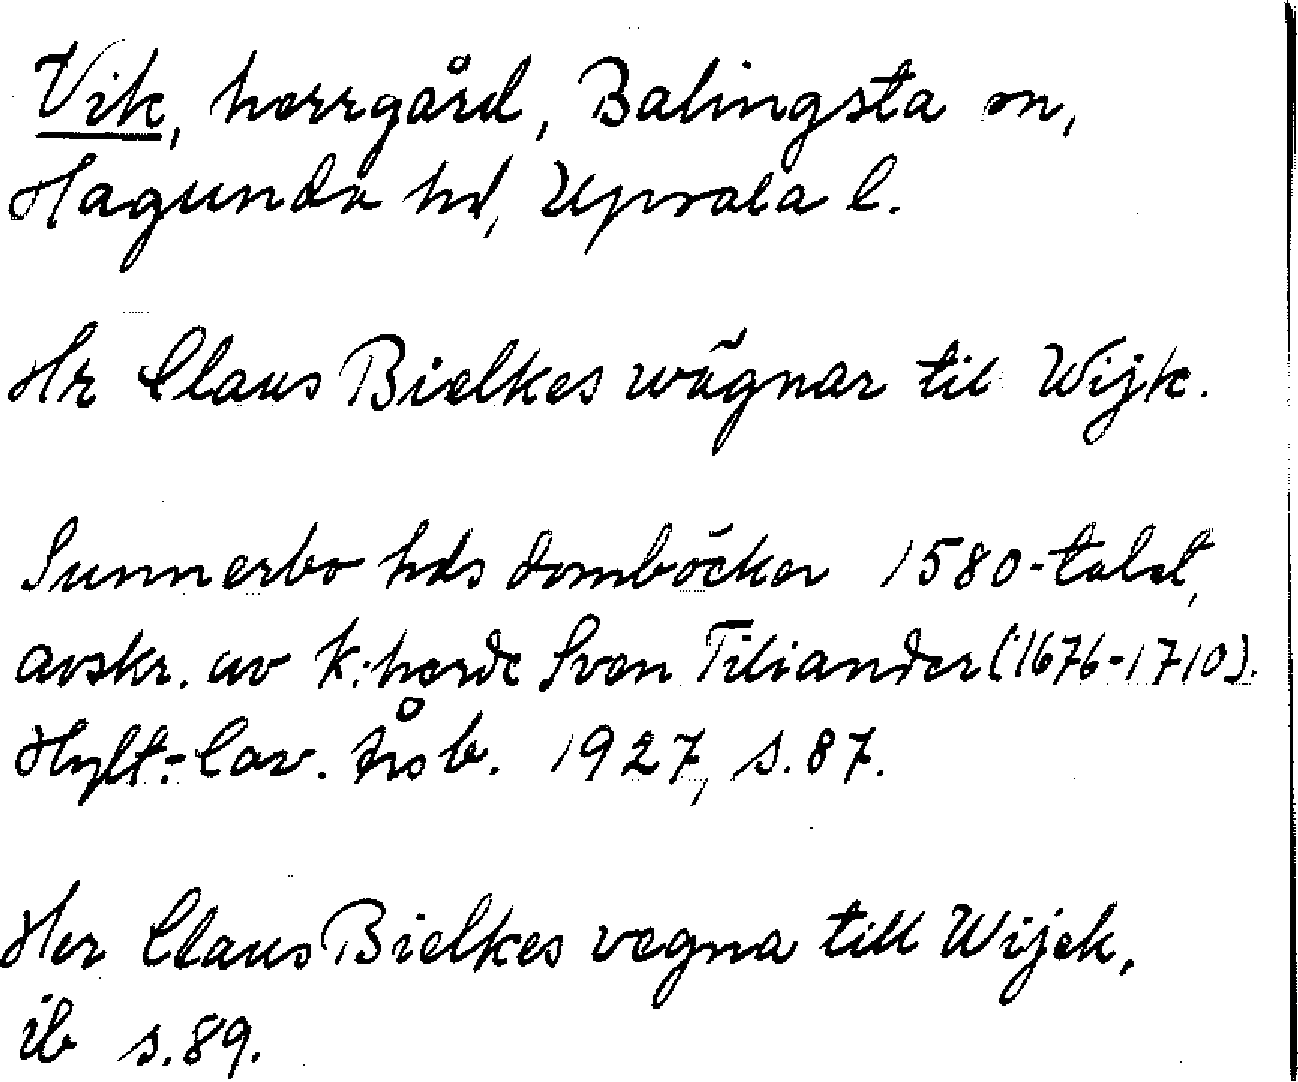 Vik, herrgård, Balingsta sn,
Hagunda hd, Uppsala l.
Hr Claus Bielkes wägnar til Wijk.
Sunnerbo hds domböcker 1580-talet,
avskr. av k:herde Sven Tiliander (1676-1710).
Hylt.-Cav. årsb. 1927, s. 87.
Her Claus Bielkes vegna till Wijek,
ib s. 89.